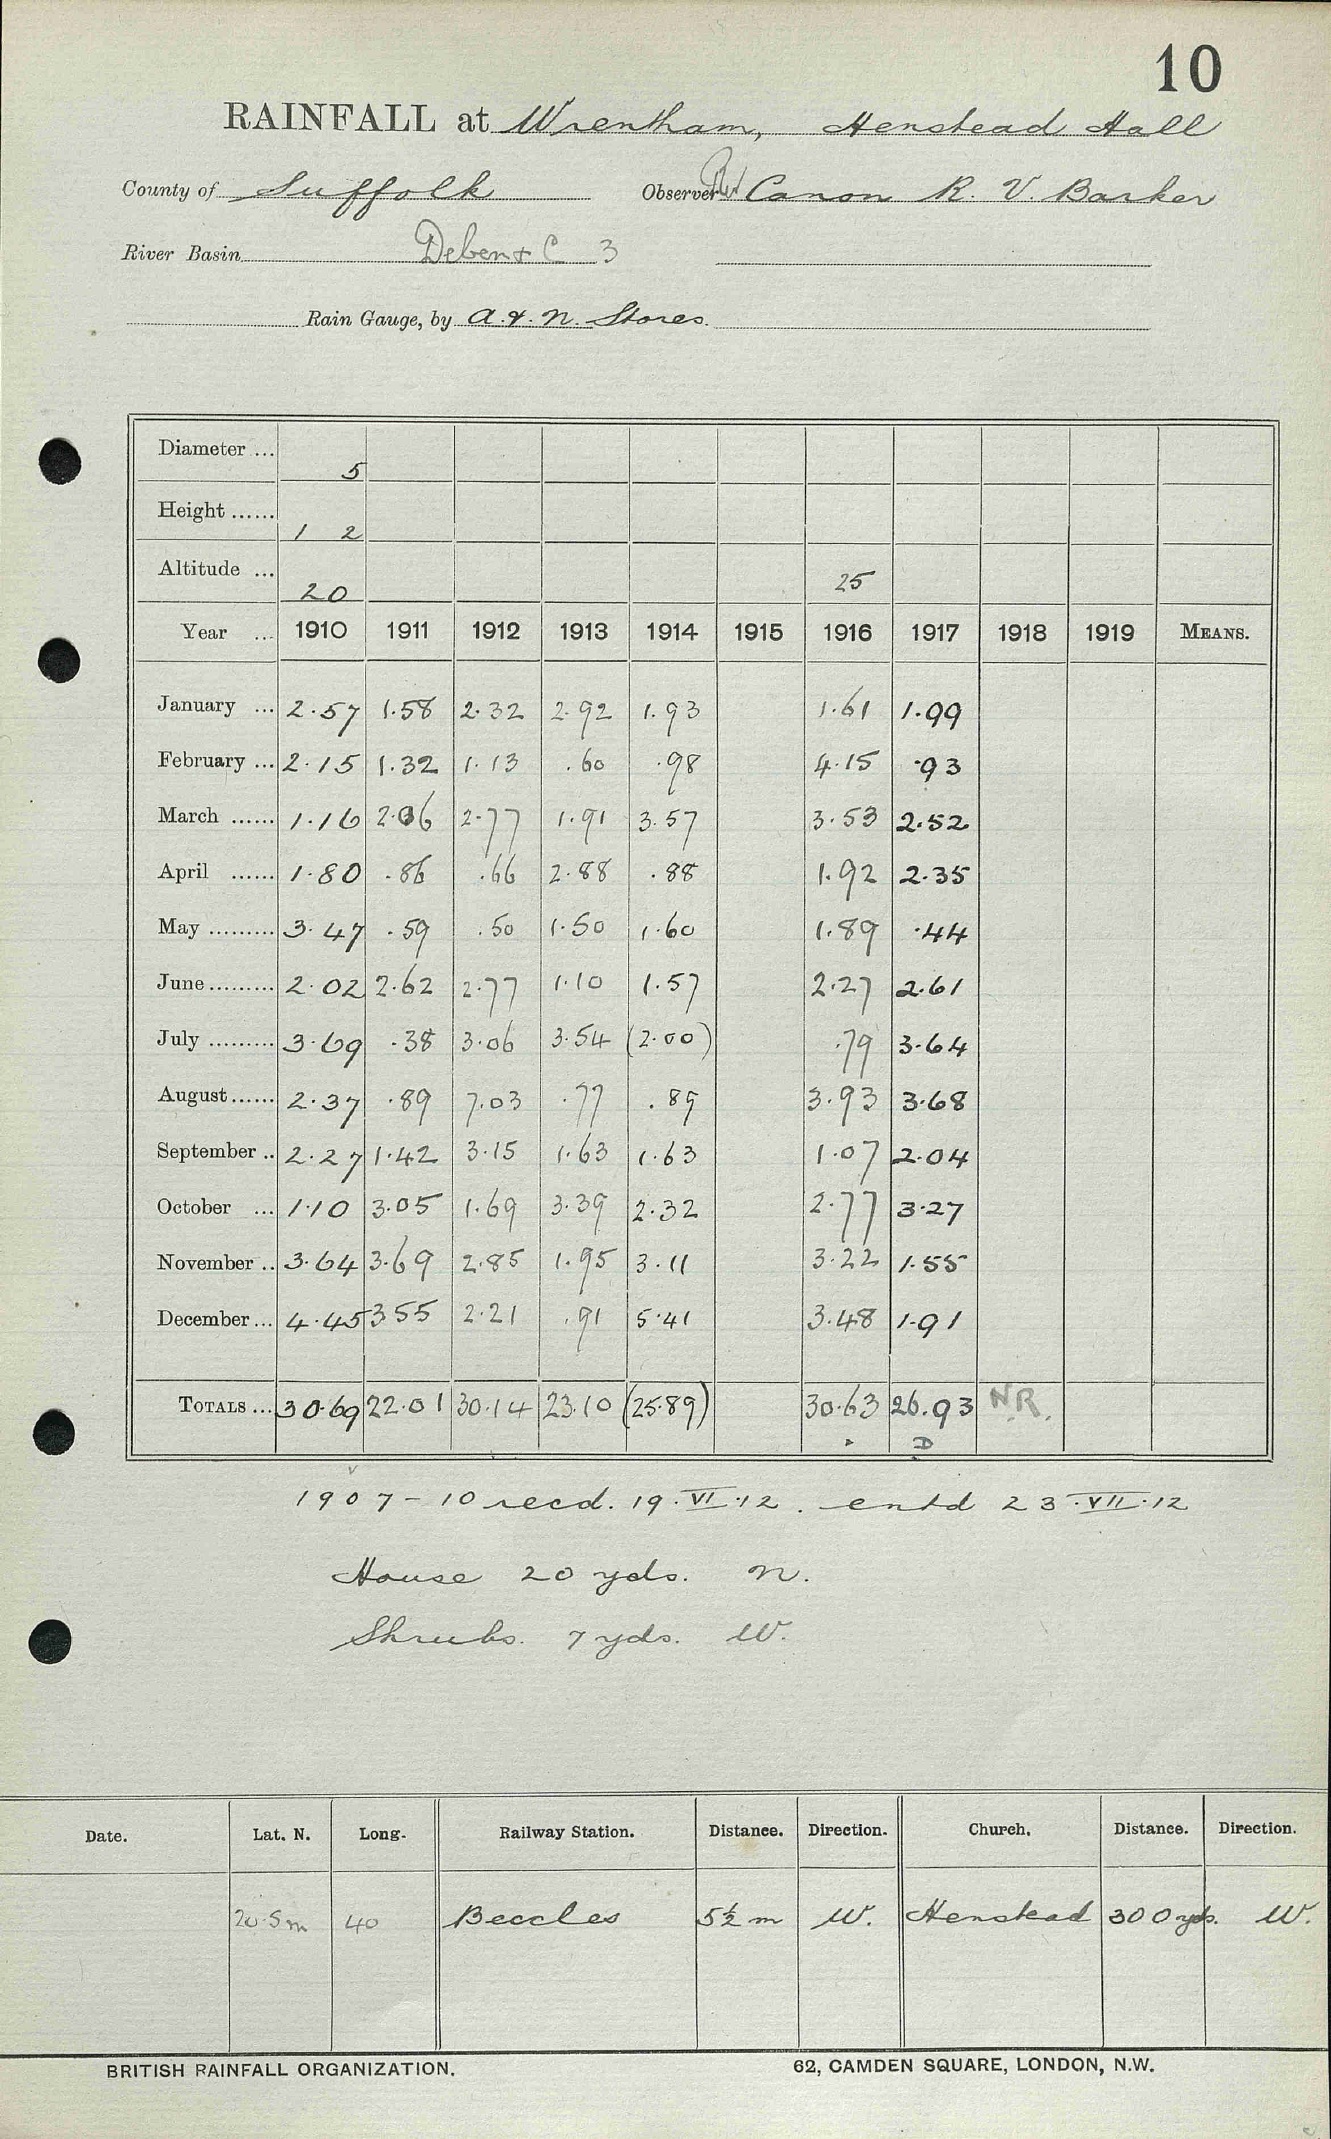 10
RAINFALL at Wrentham, Henstead Hall
County of Suffolk Observer Rev Canon R. V. Barker
River Basin Deben & C 3
Rain Gauge, by A. & N. Stores.
Diameter ... 5
Height ...... 1 2
Altitude ... 20 25
Year ... 1910 1911 1912 1913 1914 1915 1916 1917 1918 1919 MEANS.
January ... 2.57 1.58 2.32 2.92 1.93 1.61 1.99
February ... 2.15 1.32 1.13 .60 .98 4.15 .93
March ...... 1.16 2.06 2.77 1.91 3.57 3.53 2.52
April ...... 1.80 .86 .66 2.88 .88 1.92 2.35
May ......... 3.47 .59 .50 1.50 1.60 1.89 .44
June ......... 2.02 2.62 2.77 1.10 1.57 2.27 2.61
July ......... 3.69 .38 3.06 3.54 (2.00) .79 3.64
August ...... 2.37 .89 7.03 .77 .89 3.93 3.68
September .. 2.27 1.42 3.15 1.63 1.63 1.07 2.04
October ... 1.10 3.05 1.69 3.39 2.32 2.77 3.27
November .. 3.64 3.69 2.85 1.95 3.11 3.22 1.55
December ... 4.45 355 2.21 .91 5.41 3.48 1.91
TOTALS ... 30.69 22.01 30.14 23.10 (25.89) 30.63 26.93 N.R.
D
1907-10 recd. 19.VI.12. entd 23.VII.12
House 20 yds. N.
Shrubs. 7 yds. W.
Date. Lat. N. Long. Railway Station. Distance. Direction. Church. Distance. Direction.
20.5m 40 Beccles 5½ m W. Henstead 300 yds. W.
BRITISH RAINFALL ORGANIZATION. 62, CAMDEN SQUARE, LONDON, N.W.